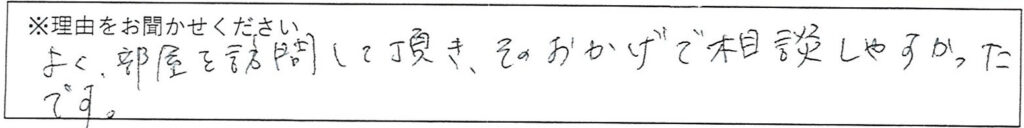 ※理由をお聞かせください
よく、部屋を訪問して頂き、そのおかげで相談しやすかった
です。